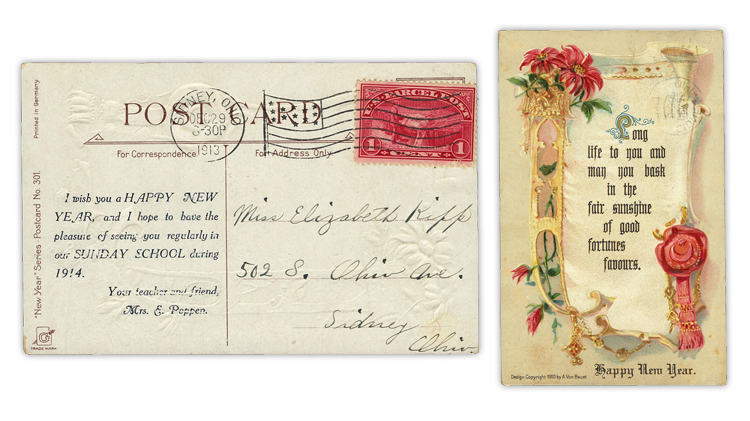 Printed in Germany.
"New Year" Series Postcard No. 301.
TRADE MARK
POST CARD
SIDNEY, OHIO
DEC 29
3-30P
1913
U.S. PARCEL POST
1 1
For Correspondence
For Address Only
I wish you a HAPPY NEW
YEAR, and I hope to have the
pleasure of seeing you regularly in
our SUNDAY SCHOOL during
1914.
Your teacher and friend,
Mrs. E. Poppen.
Miss Elizabeth Kipp
502 S. Ohio Ave.
Sidney
Ohio.
Long
life to you and
may you bask
in the
fair sunshine
of good
fortunes
favours.
Happy New Year.
Design Copyright 1910 by A. Von Beust